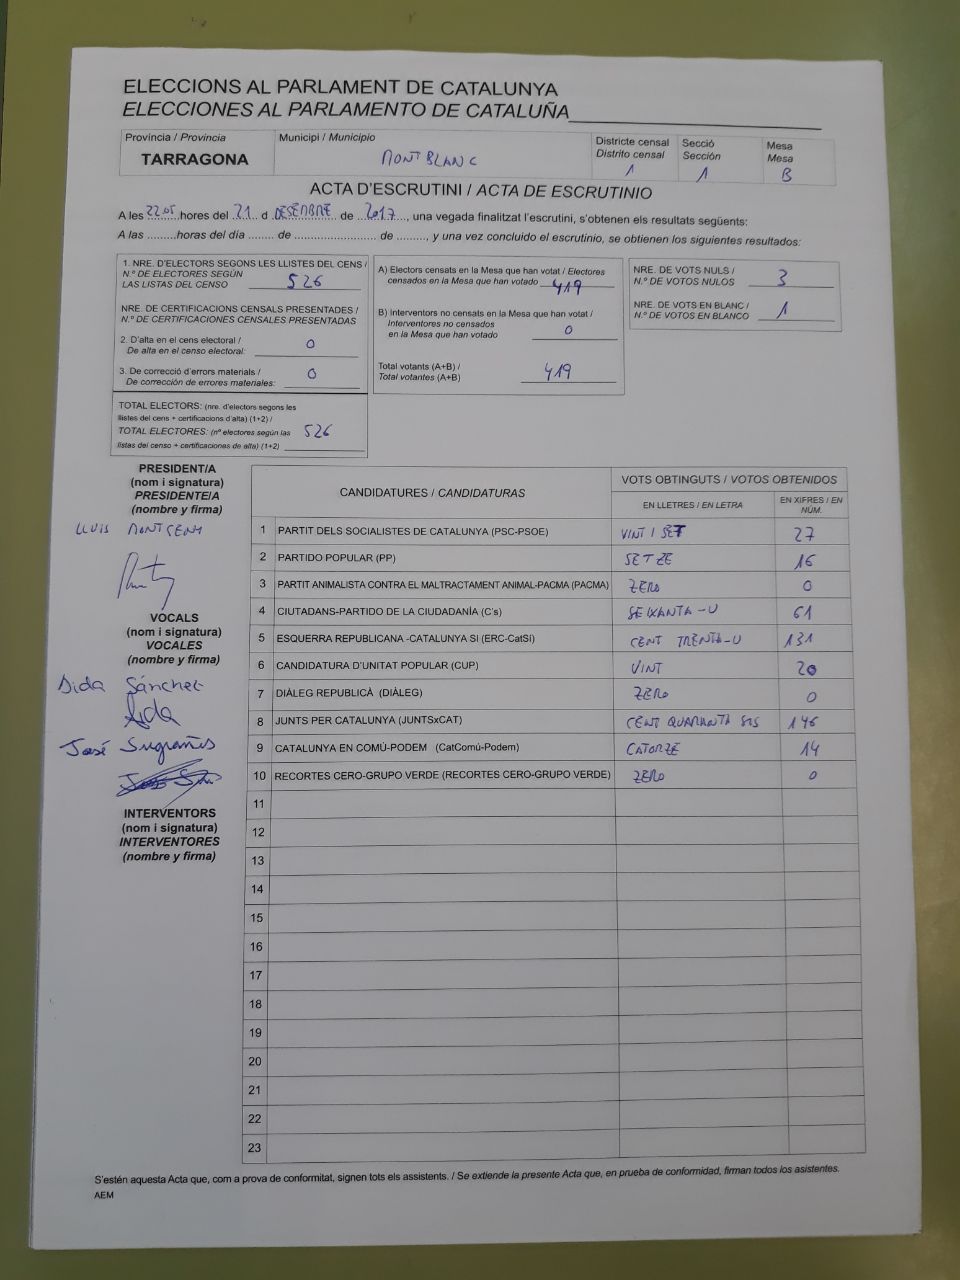 ELECCIONS AL PARLAMENT DE CATALUNYA
ELECCIONES AL PARLAMENTO DE CATALUÑA
Provincia / Provincia
TARRAGONA
Municipi / Municipio
MONTBLANC
Districte censal
Distrito censal
1
Secció
Sección
1
Mesa
Mesa
B
ACTA D'ESCRUTINI / ACTA DE ESCRUTINIO
A les 22.05 hores del 21 d DESEMBRE de 2017, una vegada finalitzat l'escrutini, s'obtenen els resultats següents:
A las .........horas del día ........ de ......................... de ........., y una vez concluido el escrutinio, se obtienen los siguientes resultados:
1. NRE. D'ELECTORS SEGONS LES LLISTES DEL CENS /
N.º DE ELECTORES SEGÚN
LAS LISTAS DEL CENSO 526
NRE. DE CERTIFICACIONS CENSALS PRESENTADES /
N.º DE CERTIFICACIONES CENSALES PRESENTADAS
2. D'alta en el cens electoral /
De alta en el censo electoral: 0
3. De correcció d'errors materials /
De corrección de errores materiales: 0
TOTAL ELECTORS: (nre. d'electors segons les
llistes del cens + certificacions d'alta) (1+2) /
TOTAL ELECTORES: (nº electores según las 526
listas del censo + certificaciones de alta) (1+2)
A) Electors censats en la Mesa que han votat / Electores
censados en la Mesa que han votado 419
B) Interventors no censats en la Mesa que han votat /
Interventores no censados
en la Mesa que han votado 0
Total votants (A+B) /
Total votantes (A+B) 419
NRE. DE VOTS NULS /
N.º DE VOTOS NULOS 3
NRE. DE VOTS EN BLANC /
N.º DE VOTOS EN BLANCO 1
PRESIDENT/A
(nom i signatura)
PRESIDENTE/A
(nombre y firma)
LLUIS
VOCALS
(nom i signatura)
VOCALES
(nombre y firma)
Aida Sánchez
Aida
José Sugrañés
INTERVENTORS
(nom i signatura)
INTERVENTORES
(nombre y firma)
CANDIDATURES / CANDIDATURAS
VOTS OBTINGUTS / VOTOS OBTENIDOS
EN LLETRES / EN LETRA
EN XIFRES / EN
NÚM.
1 PARTIT DELS SOCIALISTES DE CATALUNYA (PSC-PSOE) VINT I SET 27
2 PARTIDO POPULAR (PP) SETZE 16
3 PARTIT ANIMALISTA CONTRA EL MALTRACTAMENT ANIMAL-PACMA (PACMA) ZERO 0
4 CIUTADANS-PARTIDO DE LA CIUDADANÍA (C's) SEIXANTA-U 61
5 ESQUERRA REPUBLICANA -CATALUNYA SI (ERC-CatSí) CENT TRENTA-U 131
6 CANDIDATURA D'UNITAT POPULAR (CUP) VINT 20
7 DIÀLEG REPUBLICÀ (DIÀLEG) ZERO 0
8 JUNTS PER CATALUNYA (JUNTSxCAT) CENT QUARANTA SIS 146
9 CATALUNYA EN COMÚ-PODEM (CatComú-Podem) CATORZE 14
10 RECORTES CERO-GRUPO VERDE (RECORTES CERO-GRUPO VERDE) ZERO 0
11
12
13
14
15
16
17
18
19
20
21
22
23
S'estén aquesta Acta que, com a prova de conformitat, signen tots els assistents. / Se extiende la presente Acta que, en prueba de conformidad, firman todos los asistentes.
AEM